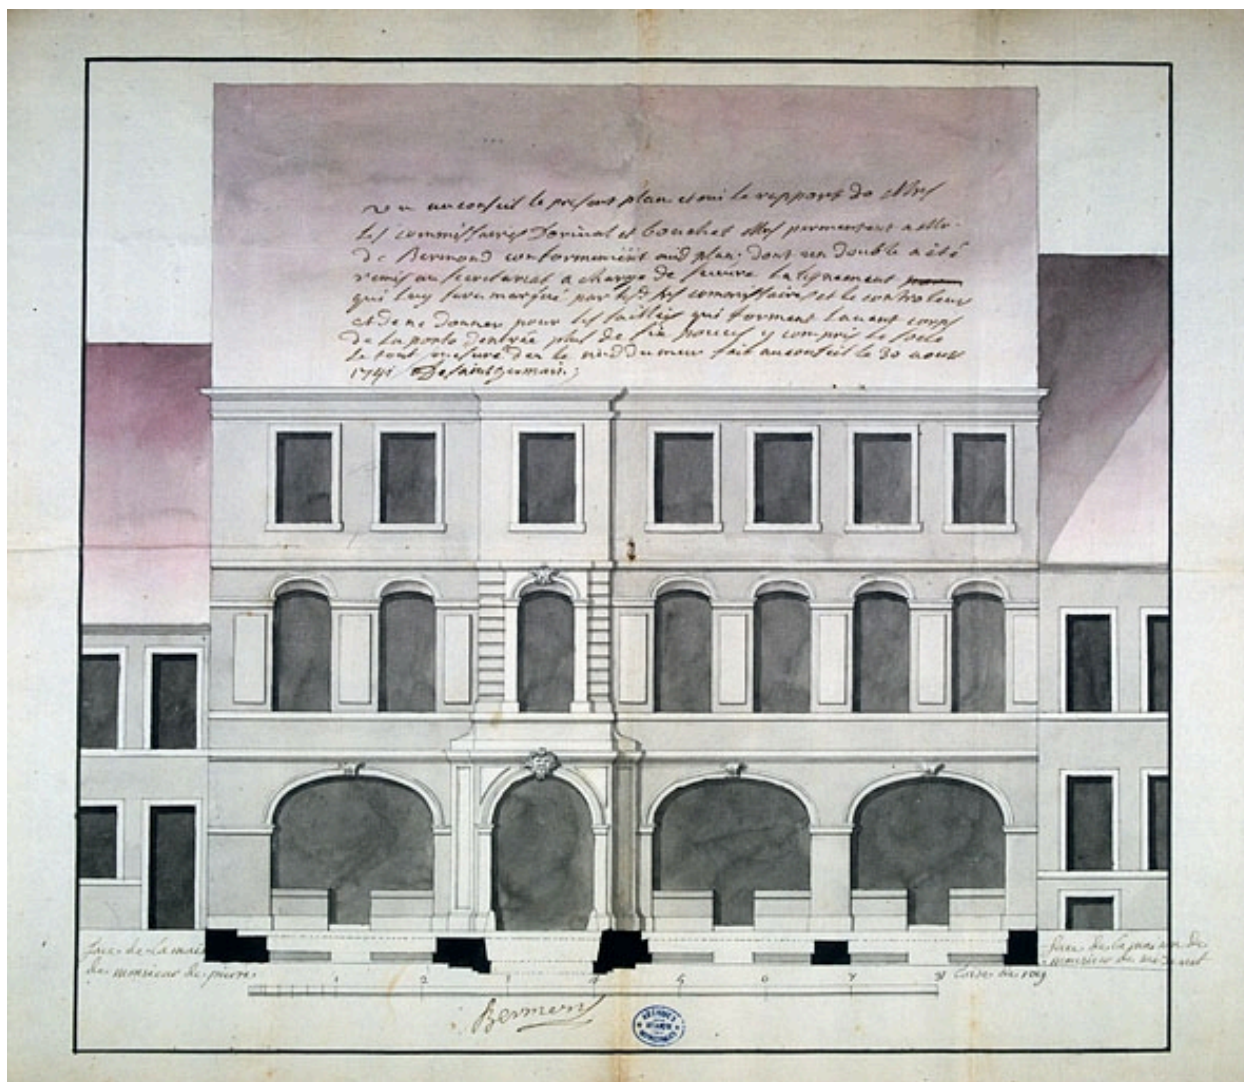 Vu au conseil le present plan et oui le rapport de Mrs
les commissaires Dorival et bouchet Mrs permettent a Mr
de Bermond conformement audit plan; dont un double a été
remis au secretariat a charge de suivre la lignement
qui luy sera marqué par lesd. srs commissaires et le controleur
et de ne donner pour les saillies qui forment lavant corps
de la porte dentrée plus de six pouces y compris le socle
le tout mesuré der le nud du mur fait au conseil le 30 aoust
1741 Desaintgermain.
face de la maison
de monsieur de pierre
face de la maison de
monsieur de
1 2 3 4 5 6 7 8 toises du roy
Bermond
ARCHIVES
MUNICIPALES